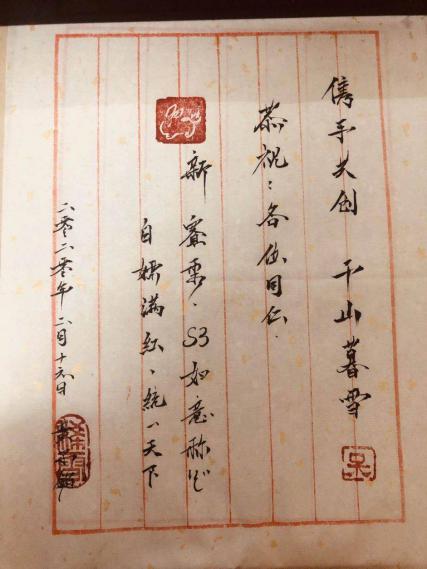 隽手共创 千山暮雪
恭祝：各位同仁.
新赛季. S3如意称心
自嬬满红、统一天下
二零二零年二月十六日